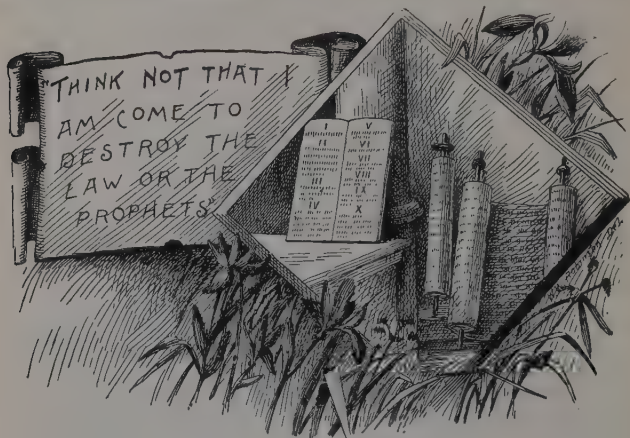 "THINK NOT THAT I
AM COME TO
DESTROY THE
LAW OR THE
PROPHETS"
I
II
III
IV
V
VI
VII
VIII
IX
X